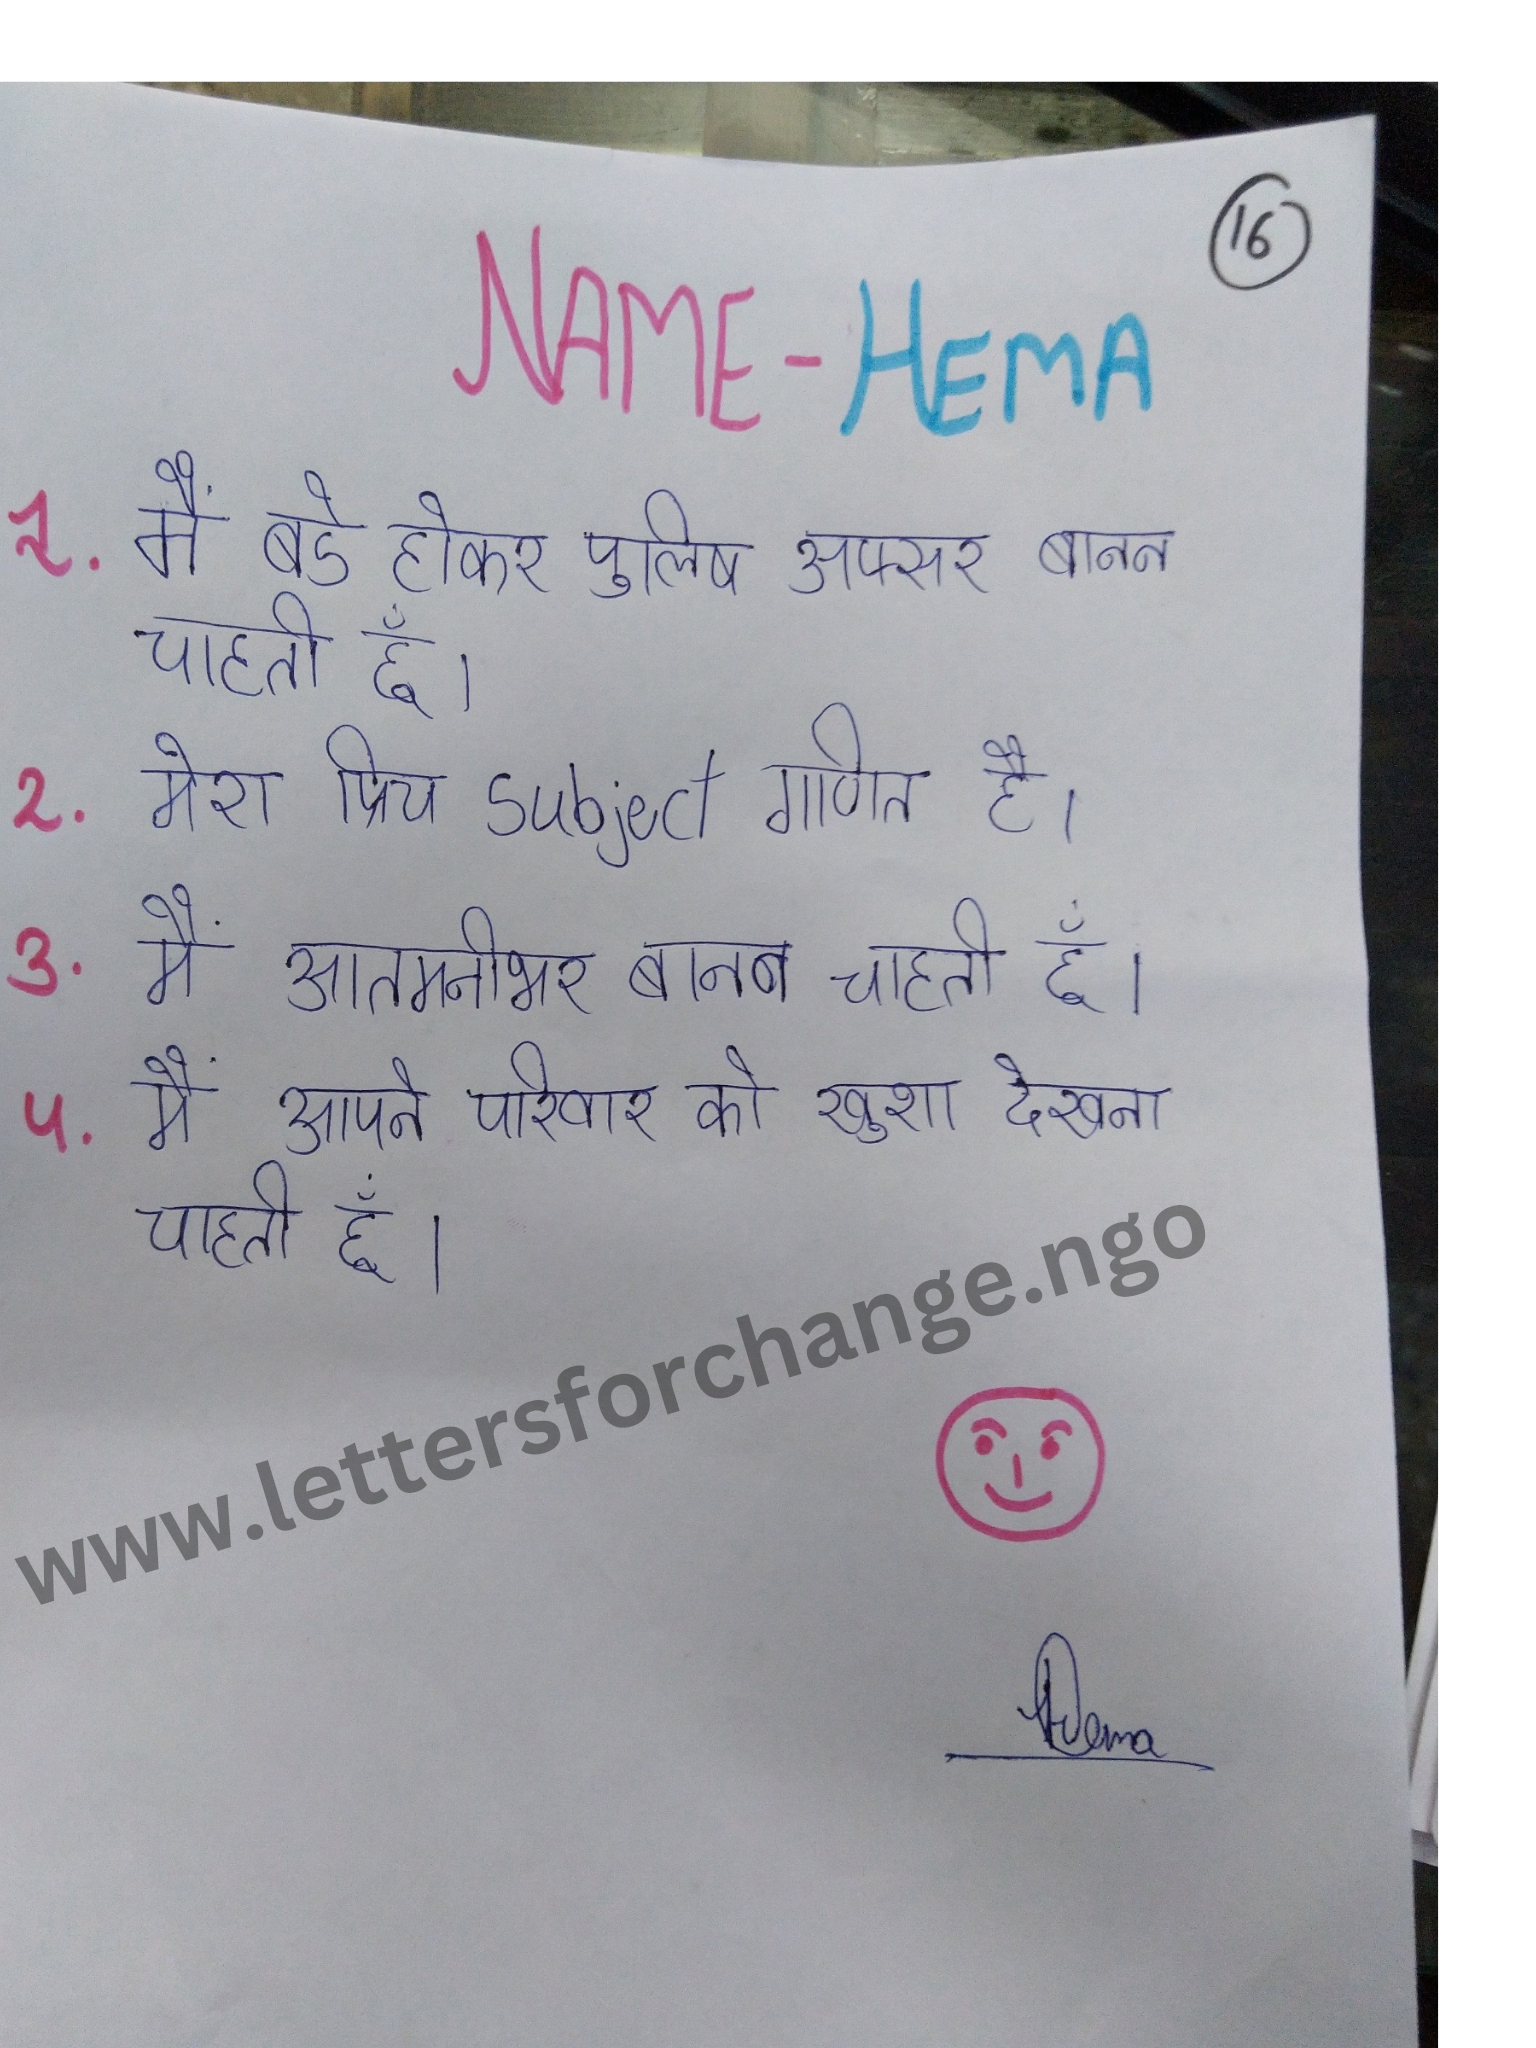 16
NAME - HEMA
1. मैं बडे होकर पुलिष अफ्सर बानन
चाहती हूँ।
2. मेरा प्रिय subject गणित है।
3. मैं आतमनीभर बानन चाहती हूँ।
4. मैं आपने परिवार को खुशा देखना
चाहती हूँ।
www.lettersforchange.ngo
Hema